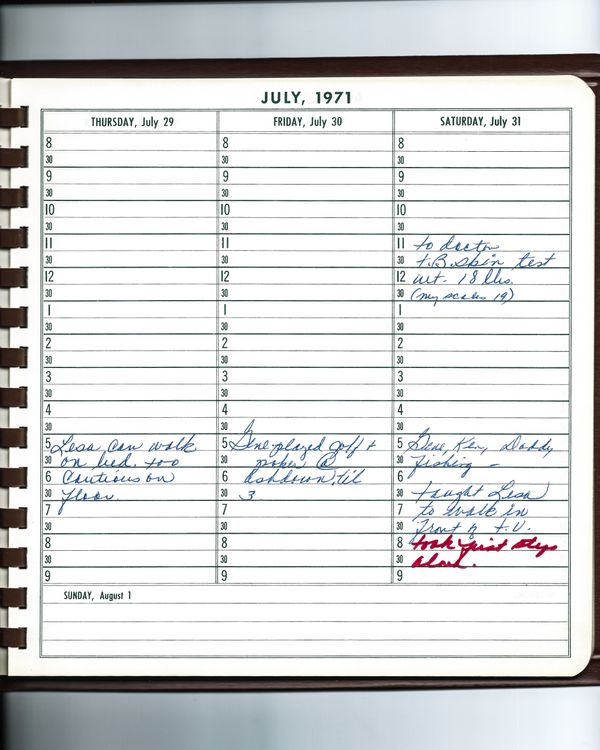 JULY, 1971
THURSDAY, July 29
8
30
9
30
10
30
11
30
12
30
1
30
2
30
3
30
4
30
5 Lesa can walk
30 on bed. too
6 Cautious on
30 floor.
7
30
8
30
9
FRIDAY, July 30
8
30
9
30
10
30
11
30
12
30
1
30
2
30
3
30
4
30
5 Gene played golf +
30 poker @
6 Ashdown, til
30 3
7
30
8
30
9
SATURDAY, July 31
8
30
9
30
10
30
11 to doctor
30 T.B. skin test
12 wt. 18 lbs.
30 (my scales 19)
1
30
2
30
3
30
4
30
5 Gene, Ken, Daddy
30 fishing –
6
30 taught Lesa
7 to walk in
30 front of T.V.
8 took first steps
30 alone.
9
SUNDAY, August 1